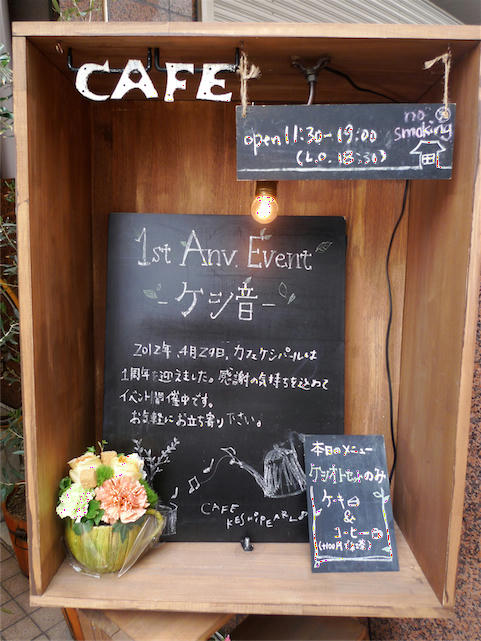 CAFE
open 11:30-19:00
(L.O. 18:30)
no
smoking
1st Anv. Event
-ケシ音-
2012年.4月29日、カフェケシパールは
1周年を迎えました。感謝の気持ちを込めて
イベント開催中です。
お気軽にお立ち寄り下さい。
CAFE
KESHiPEARL
本日のメニュー
ケシオトセットのみ
ケーキ
&
コーヒー